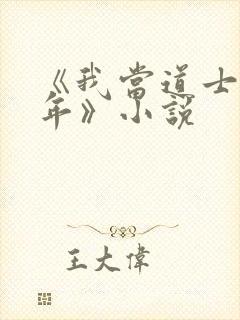 《我當道士
年》小說
王大偉